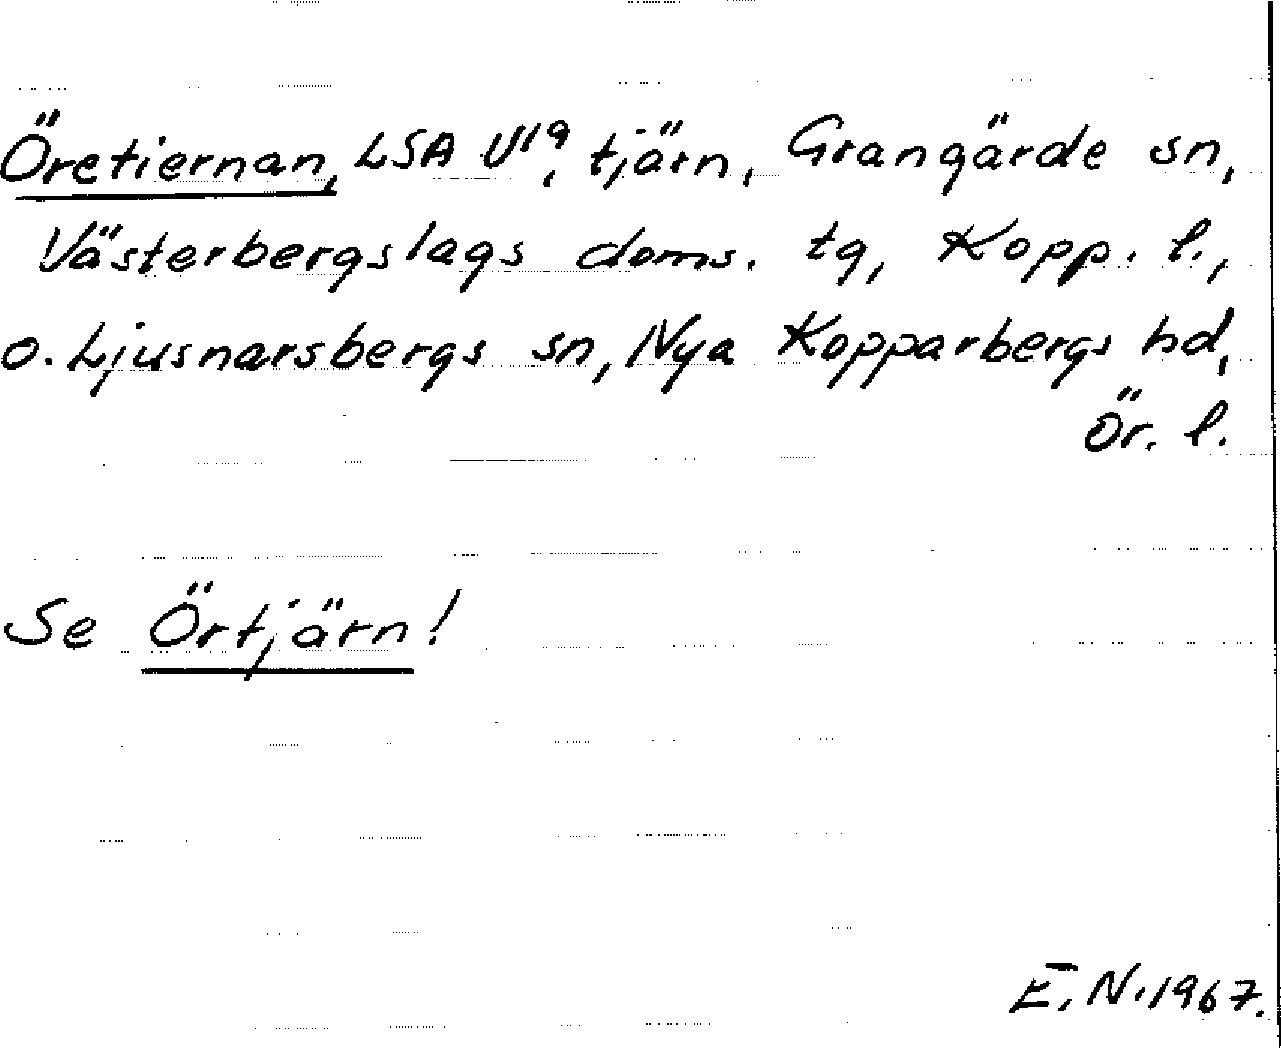 Öretiernan, LSA U19, tjärn, Grangärde sn,
Västerbergslags doms. tg, Kopp. l.,
o. Ljusnarsbergs sn, Nya Kopparbergs hd,
Ör. l.
Se Örtjärn!
E. N. 1967.